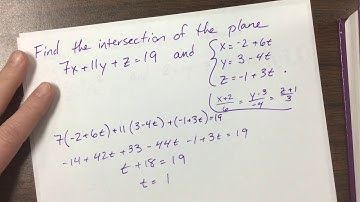 Find the intersection of the plane
7x+11y+z=19 and { x=-2+6t
y=3-4t
z=-1+3t .
( x+2/6 = y-3/-4 = z+1/3
7(-2+6t)+11(3-4t)+(-1+3t)=19
-14+42t+33-44t-1+3t=19
t+18=19
t=1